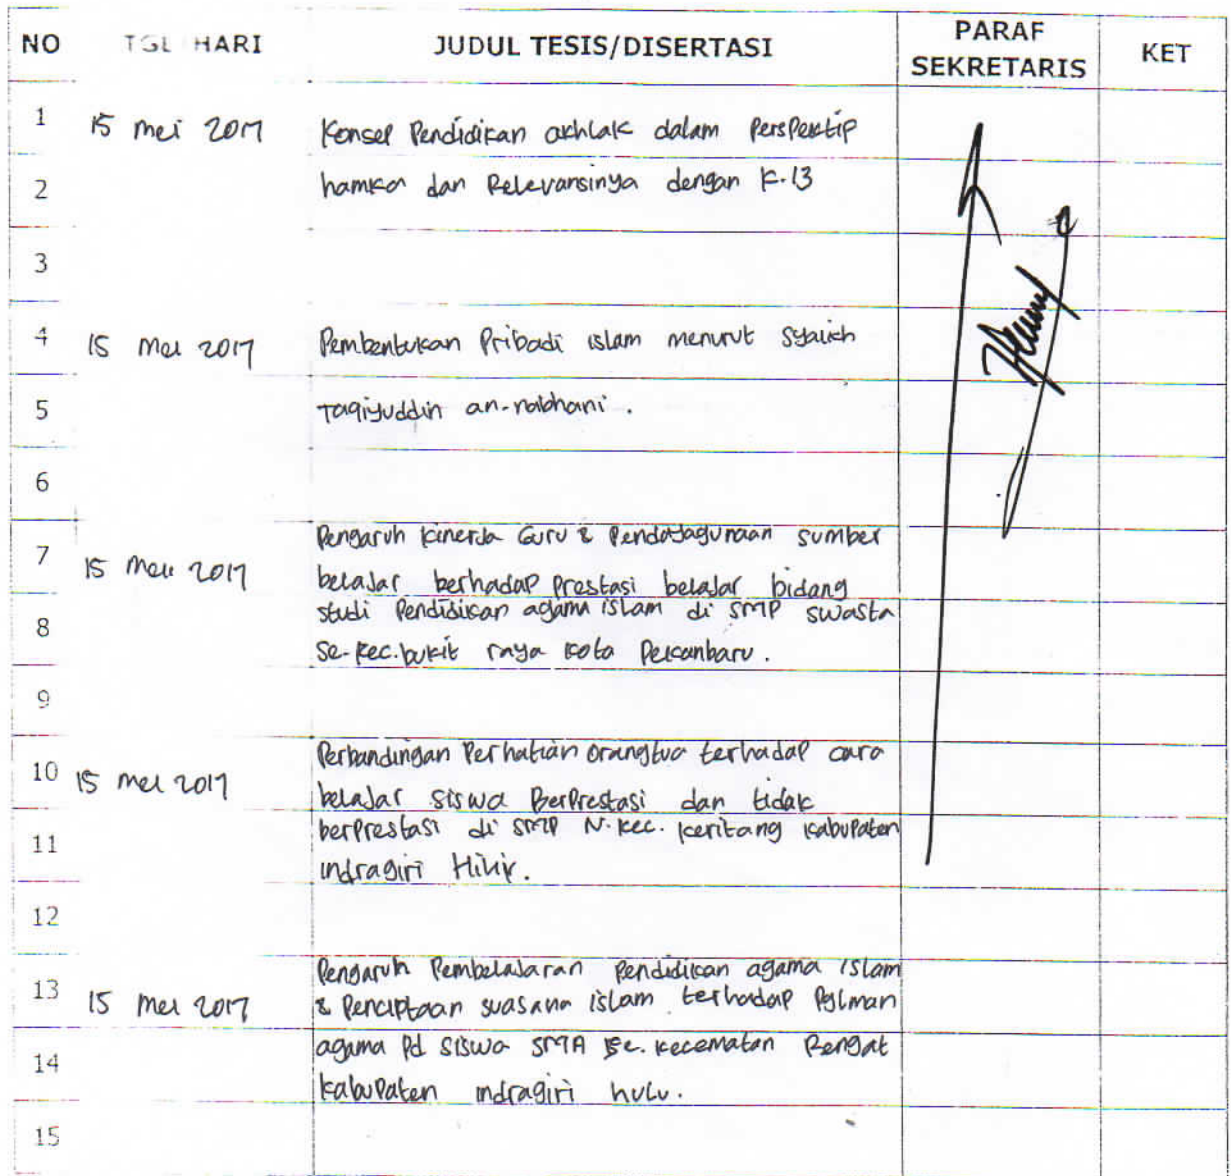 NO TGL HARI JUDUL TESIS/DISERTASI PARAF SEKRETARIS KET
1 15 mei 2017 Konsep Pendidikan akhlak dalam Perspektip
2 hamka dan Relevansinya dengan K.13
3
4 15 mei 2017 Pembentukan Pribadi islam menurut Syaikh
5 Taqiyuddin an-nabhani.
6
Pengaruh kinerja Guru & Pendayagunaan sumber
7 15 mei 2017 belajar berhadap prestasi belajar bidang
8 studi Pendidikan agama islam di SMP swasta
Se-kec.bukit raya kota Pekanbaru.
9
Perbandingan Perhatian orangtua terhadap cara
10 15 mei 2017 belajar siswa BerPrestasi dan tidak
11 berprestasi di SMP N. kec. keritang kabupaten
indragiri Hilir.
12
Pengaruh Pembelajaran Pendidikan agama islam
13 15 mei 2017 & Penciptaan suasana islam terhadap
14 agama Pd siswa SMA se. kecematan Rengat
kabupaten indragiri hulu.
15